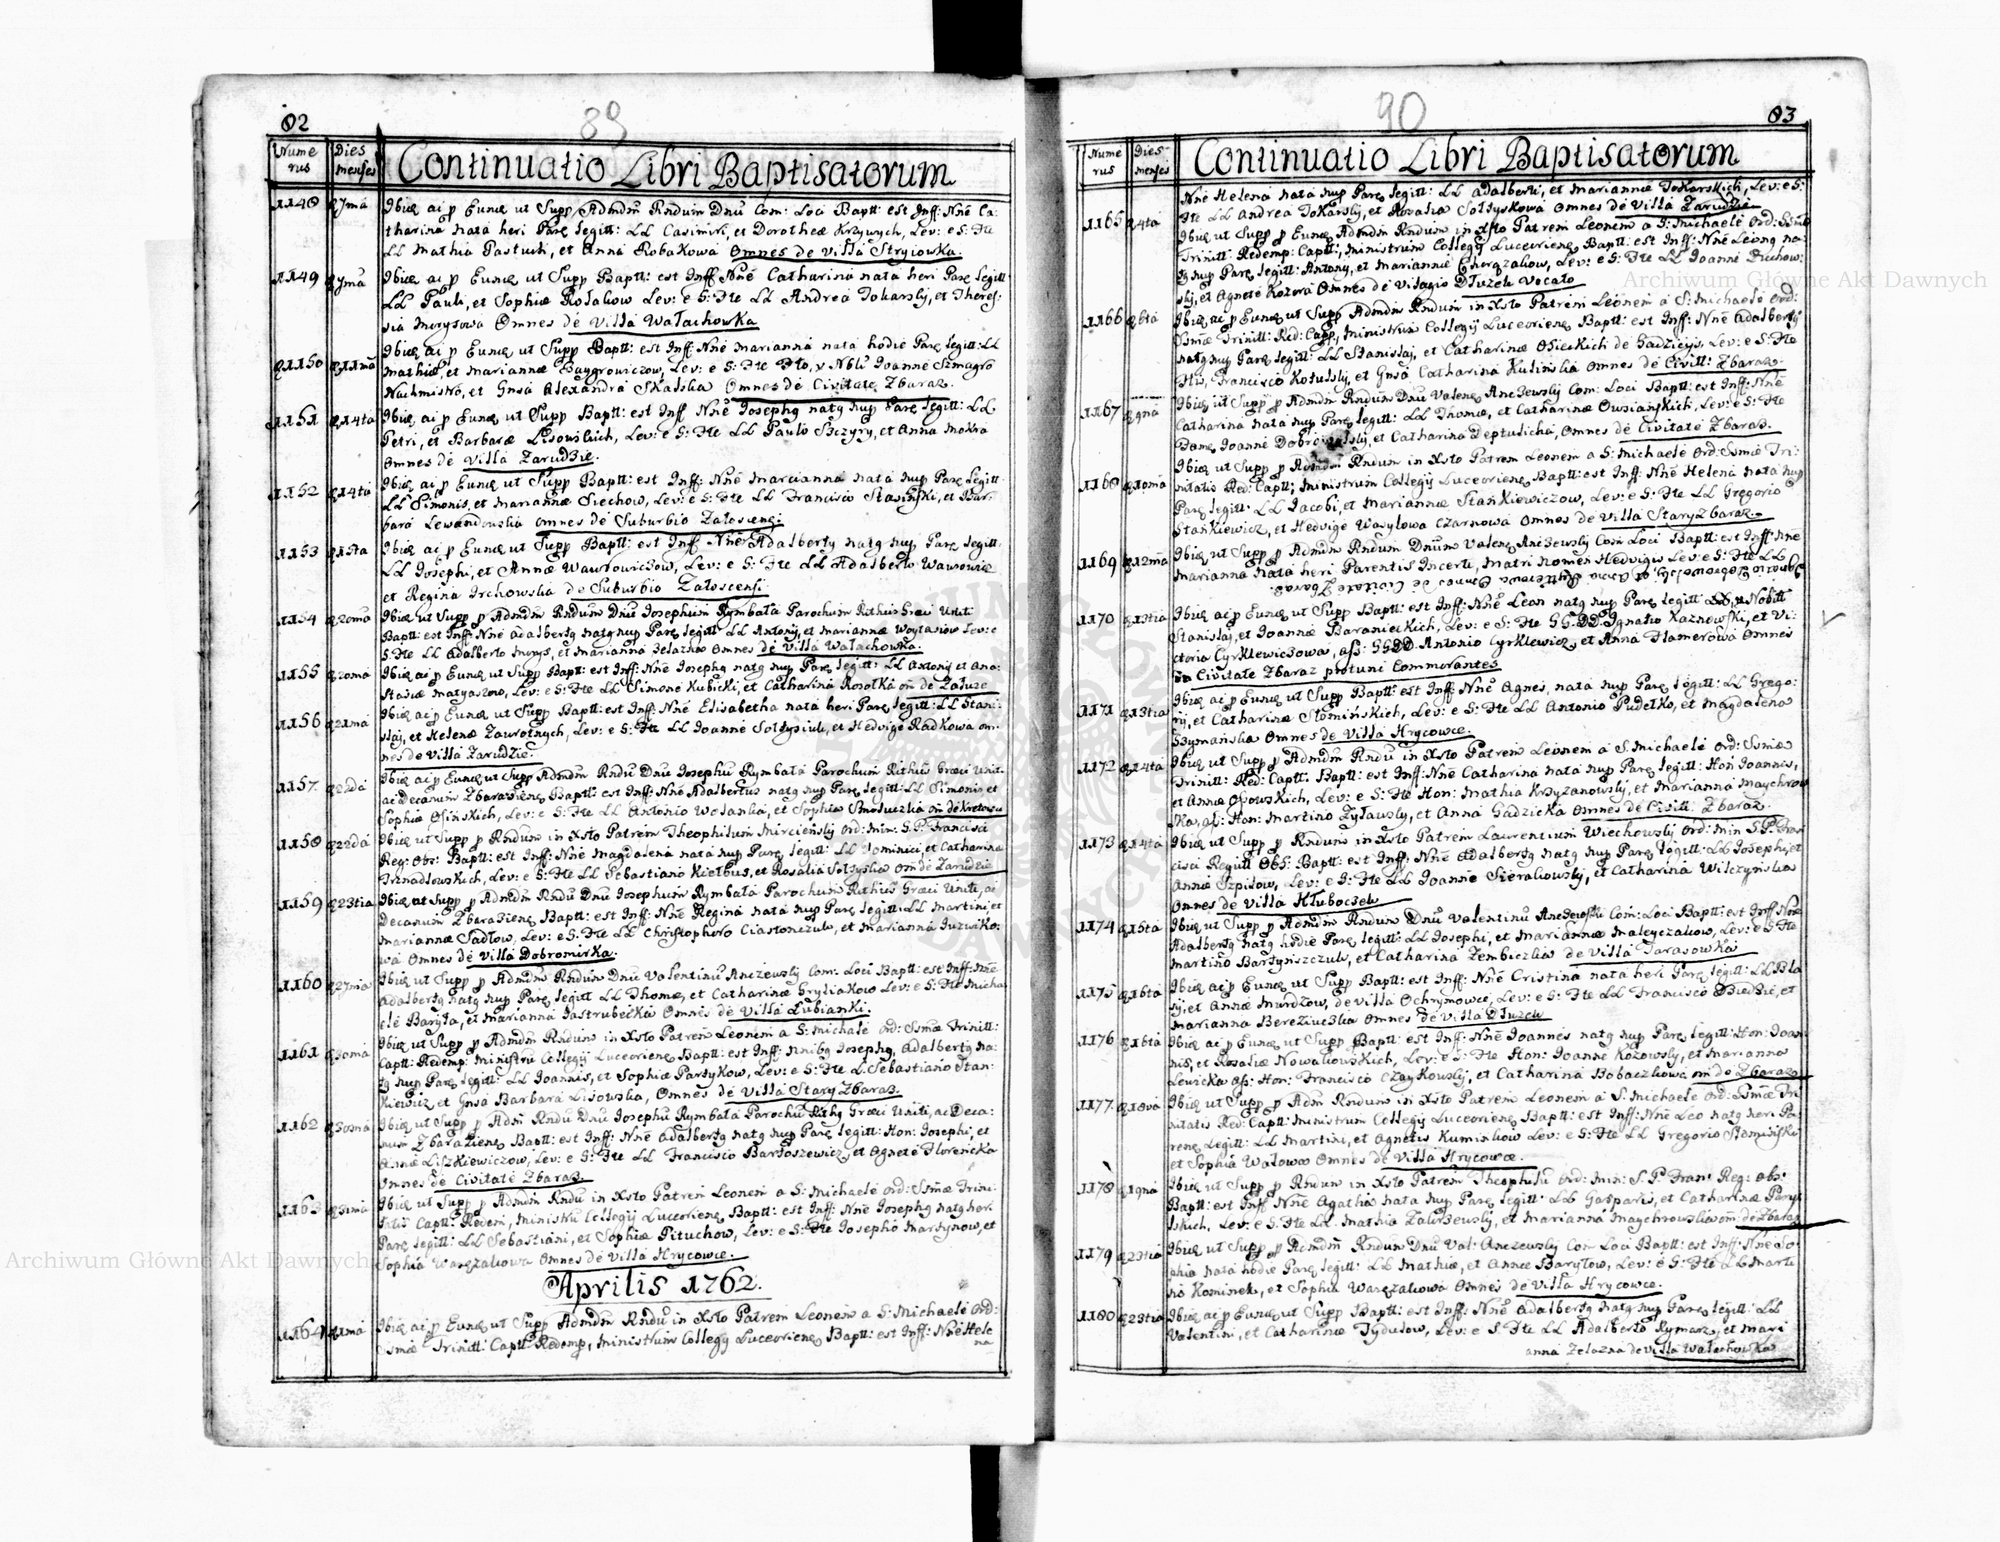 82
89
Nume
rus
Dies
menses
Continuatio Libri Baptisatorum
1148 7ma Ibidē ac p Eund ut Supp Admdm Rndum Dnū Com: Loci Baptt: est Inff: Nnē Ca:
tharina nata heri Parē legitt: LL Casimiri, et Dorotheæ Krzywych, Lev: e S: Fte
LL Mathia Pastuch, et Anna Robakowa Omnes de Villa Stryiowka.
1149 Ibidē ac p Eund ut Supp Baptt: est Inff Nnē Catharina nata heri Parē legitt:
LL Pauli, et Sophiæ Rosaliow Lev: e S: Fte LL Andrea Tokarskij, et Theres:
sia Morysowa Omnes de Villa Wałachowka
1150 11mā Ibidē ac p Eund ut Supp Baptt: est Inff: Nnē Marianna nata hodie Parē legitt: LL
Mathiæ, et Mariannæ Baygrowiczow, Lev: e S: Fte Nbli Joanne Szmagro
et Gnsa Alexandra Skalska Omnes de Civitate Zbaraz.
1151 14ta Ibidē ac p Eund ut Supp Baptt: est Inff Nnē Josephg natg nup Parē legitt: LL
Petri, et Barbaræ Lisowskich, Lev: e S: Fte LL Paulo Szczyry, et Anna Mokra
Omnes de Villa Zarudzie.
1152 14ta Ibidē ac p Eund ut Supp Baptt: est Inff: Nnē Marcianna nata nup Parē legitt:
LL Simonis, et Mariannæ Siechow, Lev: e S: Fte LL Francisco Stasinski, et Bar:
bara Lewandowska Omnes de Suburbio Załoscensi:
1153 15ta Ibidē ac p Eund ut Supp Baptt: est Inff Nnē Adalbertg natg nup Parē legitt:
LL Josephi, et Annæ Wawrowiczow, Lev: e S: Fte LL Adalberto Wawrowic
et Regina Orchowska de Suburbio Załoscensi
1154 20ma Ibidē ut Supp p Admdm Rndum Dnū Josephum Rymbała Parochum Rithus Græci Uniti
Baptt: est Inff: Nnē Adalbertg natg nup Parē legitt LL Antonij, et Mariannæ Woytasiow Lev: e
S: Fte LL Adalberto Morys, et Marianna Zelazna Omnes de Villa Wałachowka.
1155 20ma Ibidē ac p Eund ut Supp Baptt: est Inff: Nnē Josephg natg nup Parē legitt: LL Antonij et Ana:
stasiæ Matyaszow, Lev: e S: Fte LL Simone Kubicki, et Catharina Kosołka om de Załuze
1156 21ma Ibidē ac p Eund ut Supp Baptt: est Inff: Nnē Elisabetha nata heri Parē legitt: LL Stani:
slaj, et Helenæ Zawrotnych, Lev: e S: Fte LL Joanne Soltysiuk, et Hedvige Radkowa om:
nes de Villa Zarudzie
1157 22da Ibidē ac p Eund ut Supp Admdm Rndū Dnū Josephū Rymbała Parochum Rithus Græci Unit:
ac Decanum Zbarazienē Baptt: est Inff: Nnē Adalbertus natg nup Parē legitt: LL Simonis et
Sophiæ Osinskich, Lev: e S: Fte LL Antonio Wolanka, et Sophia om de
1158 22da Ibidē ut Supp p Rndum in Xsto Patrem Theophilum Mircienskij Ord: Min: S: P: Francisci
Reg: Obs: Baptt: est Inff: Nnē Magdalena nata nup Parē legitt: LL Dominici, et Catharinæ
Trznadlowskich, Lev: e S: Fte LL Sebastiano Kiełbus, et Rosalia Soltyska om de Zarudzie
1159 23tia Ibidē ut Supp p Admdm Rndū Dnū Josephum Rymbała Parochum Rithus Græci Uniti, ac
Decanum Zbarazienē Baptt: est Inff: Nnē Regina nata nup Parē legitt: LL Martini, et
Mariannæ Sadłow, Lev: e S: Fte LL Christophoro Ciastonczuk, et Marianna Juzwiko:
wa Omnes de Villa Dobromirka.
1160 27ma Ibidē ut Supp p Admdm Rndum Dnū Valentinū Anczewskij Com: Loci Baptt: est Inff: Nnē
Adalbertg natg nup Parē legitt LL Thomæ, et Catharinæ Lev: e S: Fte Micha
ele Baryła, et Marianna Jastrubecka Omnes de Villa Lubianki.
1161 30ma Ibidē ut Supp p Admdm Rndum in Xsto Patrem Leonem a S: Michaele Ord: Ssmæ Trinitt:
Captt: Redemp: Ministrū Collegij Luceoriens Baptt: est Inff: Nnibg Josephg, Adalbertg na:
tg nup Parē legitt: LL Joannis, et Sophiæ Parsykow, Lev: e S: Fte L. Sebastiano Stan:
kiewicz, et Gnsa Barbara Lisowska, Omnes de Villa Stary Zbaraz.
1162 30ma Ibidē ut Supp p Adm Rndū Dnū Josephū Rymbała Parochū Rithg Græci Uniti, ac Deca:
num Zbarazienē Baptt: est Inff: Nnē Adalbertg natg nup Parē legitt: Hon: Josephi, et
Annæ Liszkiewiczow, Lev: e S: Fte LL Francisco Bartoszewicz, et Agnete Florencka
Omnes de Civitate Zbaraz.
1163 31ma Ibidē ut Supp p Admdm Rndū in Xsto Patrem Leonem a S: Michaele Ord: Ssmæ Trini:
tatis Captt: Redem, Ministrū Collegij Luceorienē Baptt: est Inff: Nnē Josephg natg heri
Parē legitt: LL Sebastiani, et Sophiæ Pituchow, Lev: e S: Fte Josepho Martynow, et
Sophia Warezakowa Omnes de Villa Hrycowce.
Aprilis 1762.
1164 1ma Ibidē ac p Eund ut Supp Admdm Rndū in Xsto Patrem Leonem a S: Michaele Ord:
Ssmæ Trinitt: Captt Redemp, Ministrum Collegij Luceorienē Baptt: est Inff: Nnē Hele
na
90
83
Nume
rus
Dies
menses
Continuatio Libri Baptisatorum
Nnē Helena nata nup Parē legitt: LL Adalberti, et Mariannæ Tokarskich, Lev: e S:
Fte LL Andrea Tokarskij, et Rozalia Soltyskowa Omnes de Villa Zarudzie
1165 4ta Ibidē ut Supp p Eund Admdm Rndum in Xsto Patrem Leonem a S: Michaele Ord: Ssmæ
Trinitt: Redemp: Captt:, Ministrum Collegij Luceorienē Baptt: est Inff: Nnē Leong na:
tg nup Parē legitt: Antony, et Mariannæ Lev: e S: Fte LL Joanne
et Agnete Kozera Omnes de Villagio Dłuzek Vocato
1166 6ta Ibidē ac p Eund ut Supp Admdm Rndum in Xsto Patrem Leonem a S: Michaele Ord:
Ssmæ Trinitt: Red: Capp, Ministrum Collegij Luceorienē Baptt: est Inff: Nnē Adalbertg
natg nup Parē legitt: LL Stanislaj, et Catharinæ Osieckich de Gadzicys, Lev: e S: Fte
Francisco Kotulskij, et Gnsa Catharina Kulinska Omnes de Civitt: Zbaraz.
1167 9na Ibidē ut Supp p Admdm Rndum Dnū Valenē Anczewskij Com: Loci Baptt: est Inff: Nnē
Catharina nata nup Parē legitt: LL Thomæ, et Catharinæ Owsianskich, Lev: e S: Fte
Joanne et Catharina Deptulicha, Omnes de Civitate Zbaraz.
1168 10ma Ibidē ut Supp p Admdm Rndum in Xsto Patrem Leonem a S: Michaele Ord: Ssmæ Tri:
nitatis Red: Captt:, Ministrum Collegij Luceorienē Baptt: est Inff: Nnē Helena nata nup
Parē legitt: LL Jacobi, et Mariannæ Stankiewiczow, Lev: e S: Fte LL Gregorio
Stankiewicz, et Hedvige Wasylowa Czarnowa Omnes de Villa Stary Zbaraz.
1169 12ma Ibidē ut Supp p Admdm Rndum Dnum Valenē Anczewskij Com Loci Baptt: est Inff: Nnē
Marianna nata heri Parentis Incerti, Matri nomen Hedvigis Lev: e S: Fte LL
Omnes de Civitate Zbaraz.
1170 13tia Ibidē ac p Eund ut Supp Baptt: est Inff: Nnē Leon natg nup Parē legitt: Nobitt
Stanislaj, et Joannæ Baranieckich, Lev: e S: Fte GG DD Ignatio Kaznowski, et Vi:
ctoria Cyrklewiczowa, ass: GG DD Antonio Cyrklewicz, et Anna Hamerowa Omnes
in Civitate Zbaraz protunc Commorantes
1171 13tia Ibidē ac p Eund ut Supp Baptt: est Inff: Nnē Agnes, nata nup Parē legitt: LL Grego:
rij, et Catharinæ Słominskich, Lev: e S: Fte LL Antonio Pudełko, et Magdalena
Szymanska Omnes de Villa Hrycowce.
1172 14ta Ibidē ut Supp p Admdm Rndū in Xsto Patrem Leonem a S: Michaele Ord: Ssmæ
Trinitt: Red: Captt: Baptt: est Inff: Nnē Catharina nata nup Parē legitt: Hon Joannis,
et Annæ Osowskich, Lev: e S: Fte Hon: Mathia Krzyzanowskij, et Marianna Maychrow
ska, ass: Hon: Martino Zytawskij, et Anna Gadzicka Omnes de Civitt: Zbaraz.
1173 14ta Ibidē ut Supp p Rndum in Xsto Patrem Laurentium Wiechowskij Ord: Min S: P: Fran
cisci Regutt Obs: Baptt: est Inff: Nnē Adalbertg natg nup Parē legitt: LL Josephi, et
Annæ Szpilow, Lev: e S: Fte LL Joanne Sierakowskij, et Catharina Wilczynska
Omnes de Villa Hłuboczek
1174 15ta Ibidē ut Supp p Admdm Rndum Dnū Valentinū Anczewskij Com: Loci Baptt: est Inff Nnē
Adalbertg natg hodie Parē legitt: LL Josephi, et Mariannæ Maleyczakow, Lev: e S: Fte
Martino Bartyniszczuk, et Catharina Zembiczka de Villa Tarasowka
1175 16ta Ibidē ac p Eund ut Supp Baptt: est Inff: Nnē Cristina nata heri Parē legitt: LL Bla
sij, et Annæ Murdzow, de Villa Ochrymowce, Lev: e S: Fte LL Francisco Biedzie, et
Marianna Bereziuczka Omnes de Villa Dłuzek
1176 16ta Ibidē ac p Eund ut Supp Baptt: est Inff: Nnē Joannes natg nup Parē legitt: Hon: Joan
nis, et Rosaliæ Nowakowskich, Lev: e S: Fte Hon: Joanne Kozowskij, et Marianna
Lewicka Ass: Hon: Francisco Czaykowskij, et Catharina Bobaczkowa om de Zbaraz
1177 18va Ibidē ut Supp p Adm Rndum in Xsto Patrem Leonem a S: Michaele Ord: Ssmæ Tri
nitatis Red: Captt: Ministrum Collegij Luceorienē Baptt: est Inff: Nnē Leo natg heri Pa:
renē Legitt: LL Martini, et Agnetis Kuminkow Lev: e S: Fte LL Gregorio Słominski
et Sophia Wałowa Omnes de Villa Hrycowce.
1178 19na Ibidē ut Supp p Rndum in Xsto Patrem Theophilū Ord: Min: S: P: Fran: Reg: Obs:
Baptt: est Inff Nnē Agatha nata nup Parē legitt: LL Gasparis, et Catharinæ
Lev: e S: Fte LL Mathia Zakrzewskij, et Marianna Maychrowska om de Zbaraz
1179 23tia Ibidē ut Supp p Admdm Rndum Dnū Val: Anczewskij Com Loci Baptt: est Inff: Nnē So
phia nata hodie Parē legitt: LL Mathiæ, et Annæ Baryłow, Lev: e S: Fte LL Marti
no Kominek, et Sophia Warezakowa Omnes de Villa Hrycowce.
1180 23tia Ibidē ac p Eund ut Supp Baptt: est Inff: Nnē Adalbertg natg nup Parē legitt: LL
Valentini, et Catharinæ Tydulow, Lev: e S. Fte LL Adalberto Rymarz, et Mari
anna Zelazna de Villa Wałachowka
Archiwum Główne Akt Dawnych
Archiwum Główne Akt Dawnych